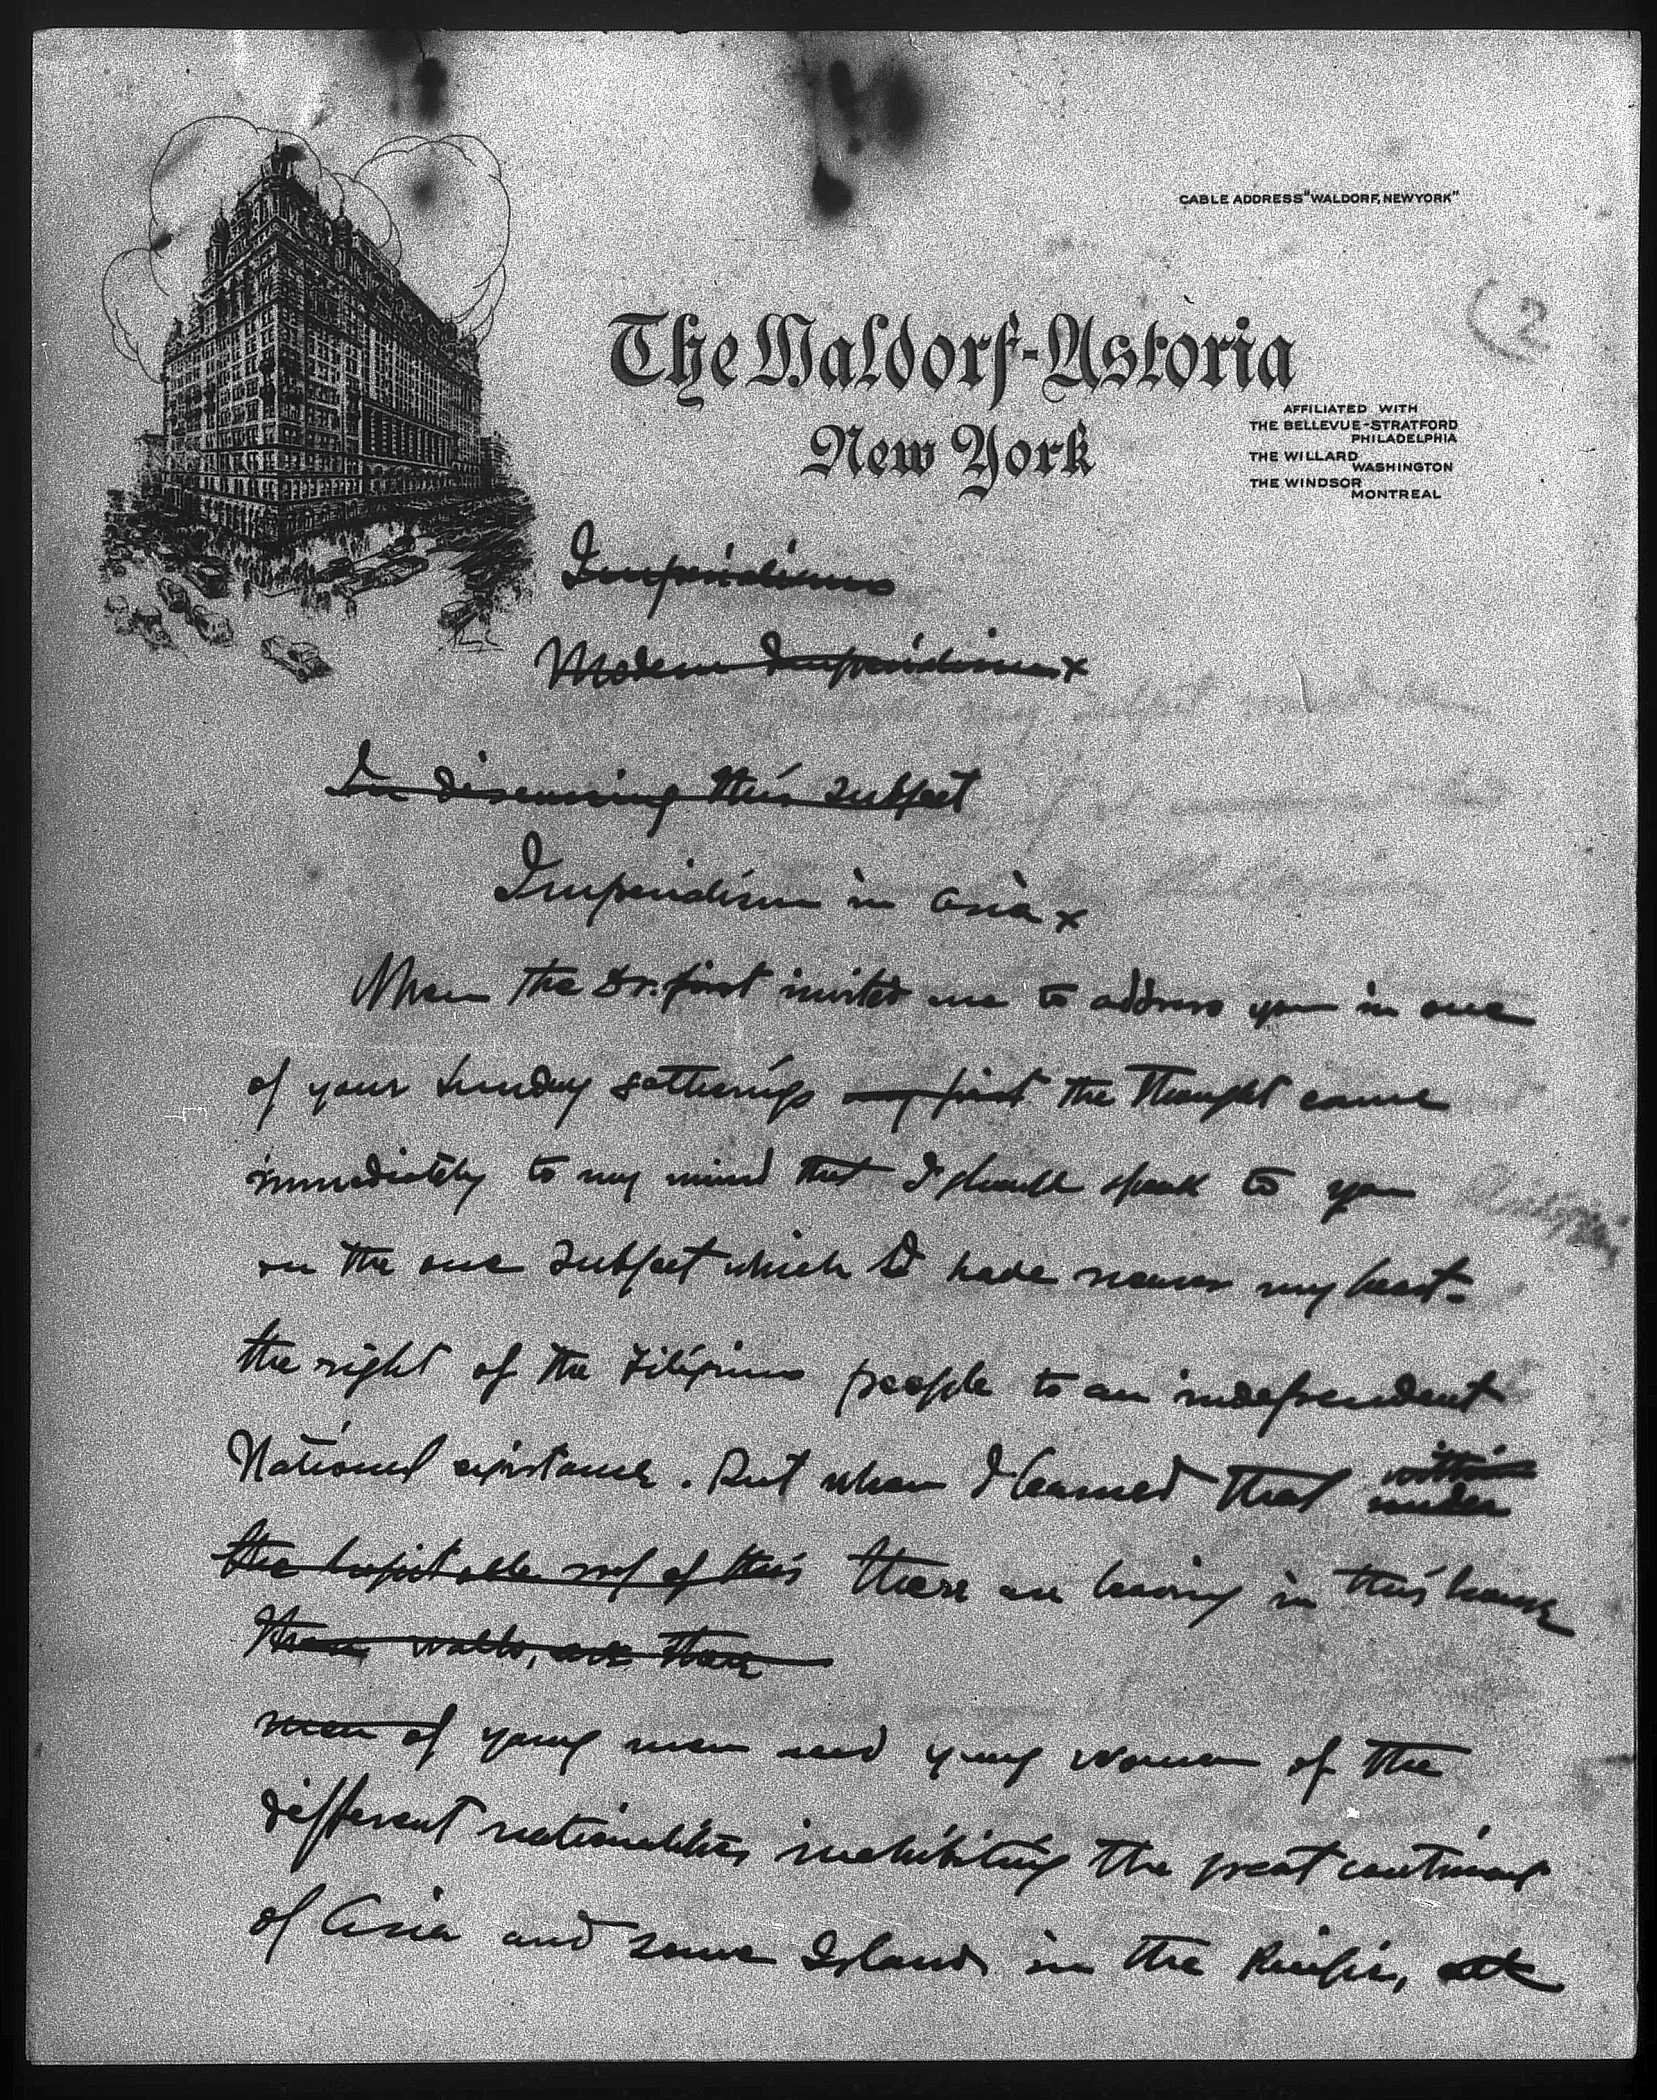 CABLE ADDRESS "WALDORF, NEWYORK"
(2
The Waldorf-Astoria
New York
AFFILIATED WITH
THE BELLEVUE-STRATFORD
PHILADELPHIA
THE WILLARD
WASHINGTON
THE WINDSOR
MONTREAL
Imperialism
Modern Imperialism x
In discussing this subject
Imperialism in Asia x
When the Dr. first invited me to address you in one
of your Sunday gatherings my first the thought came
immediately to my mind that I should speak to you
on the one subject which I have nearer my heart-
the right of the Filipino people to an independent
National existance. But when I learned that within
under
the hospitable roof of this there are leaving in this house
these walls, are there
men of young men and young women of the
different nationalities inhabiting the great continent
of Asia and some Islands in the Pacific,